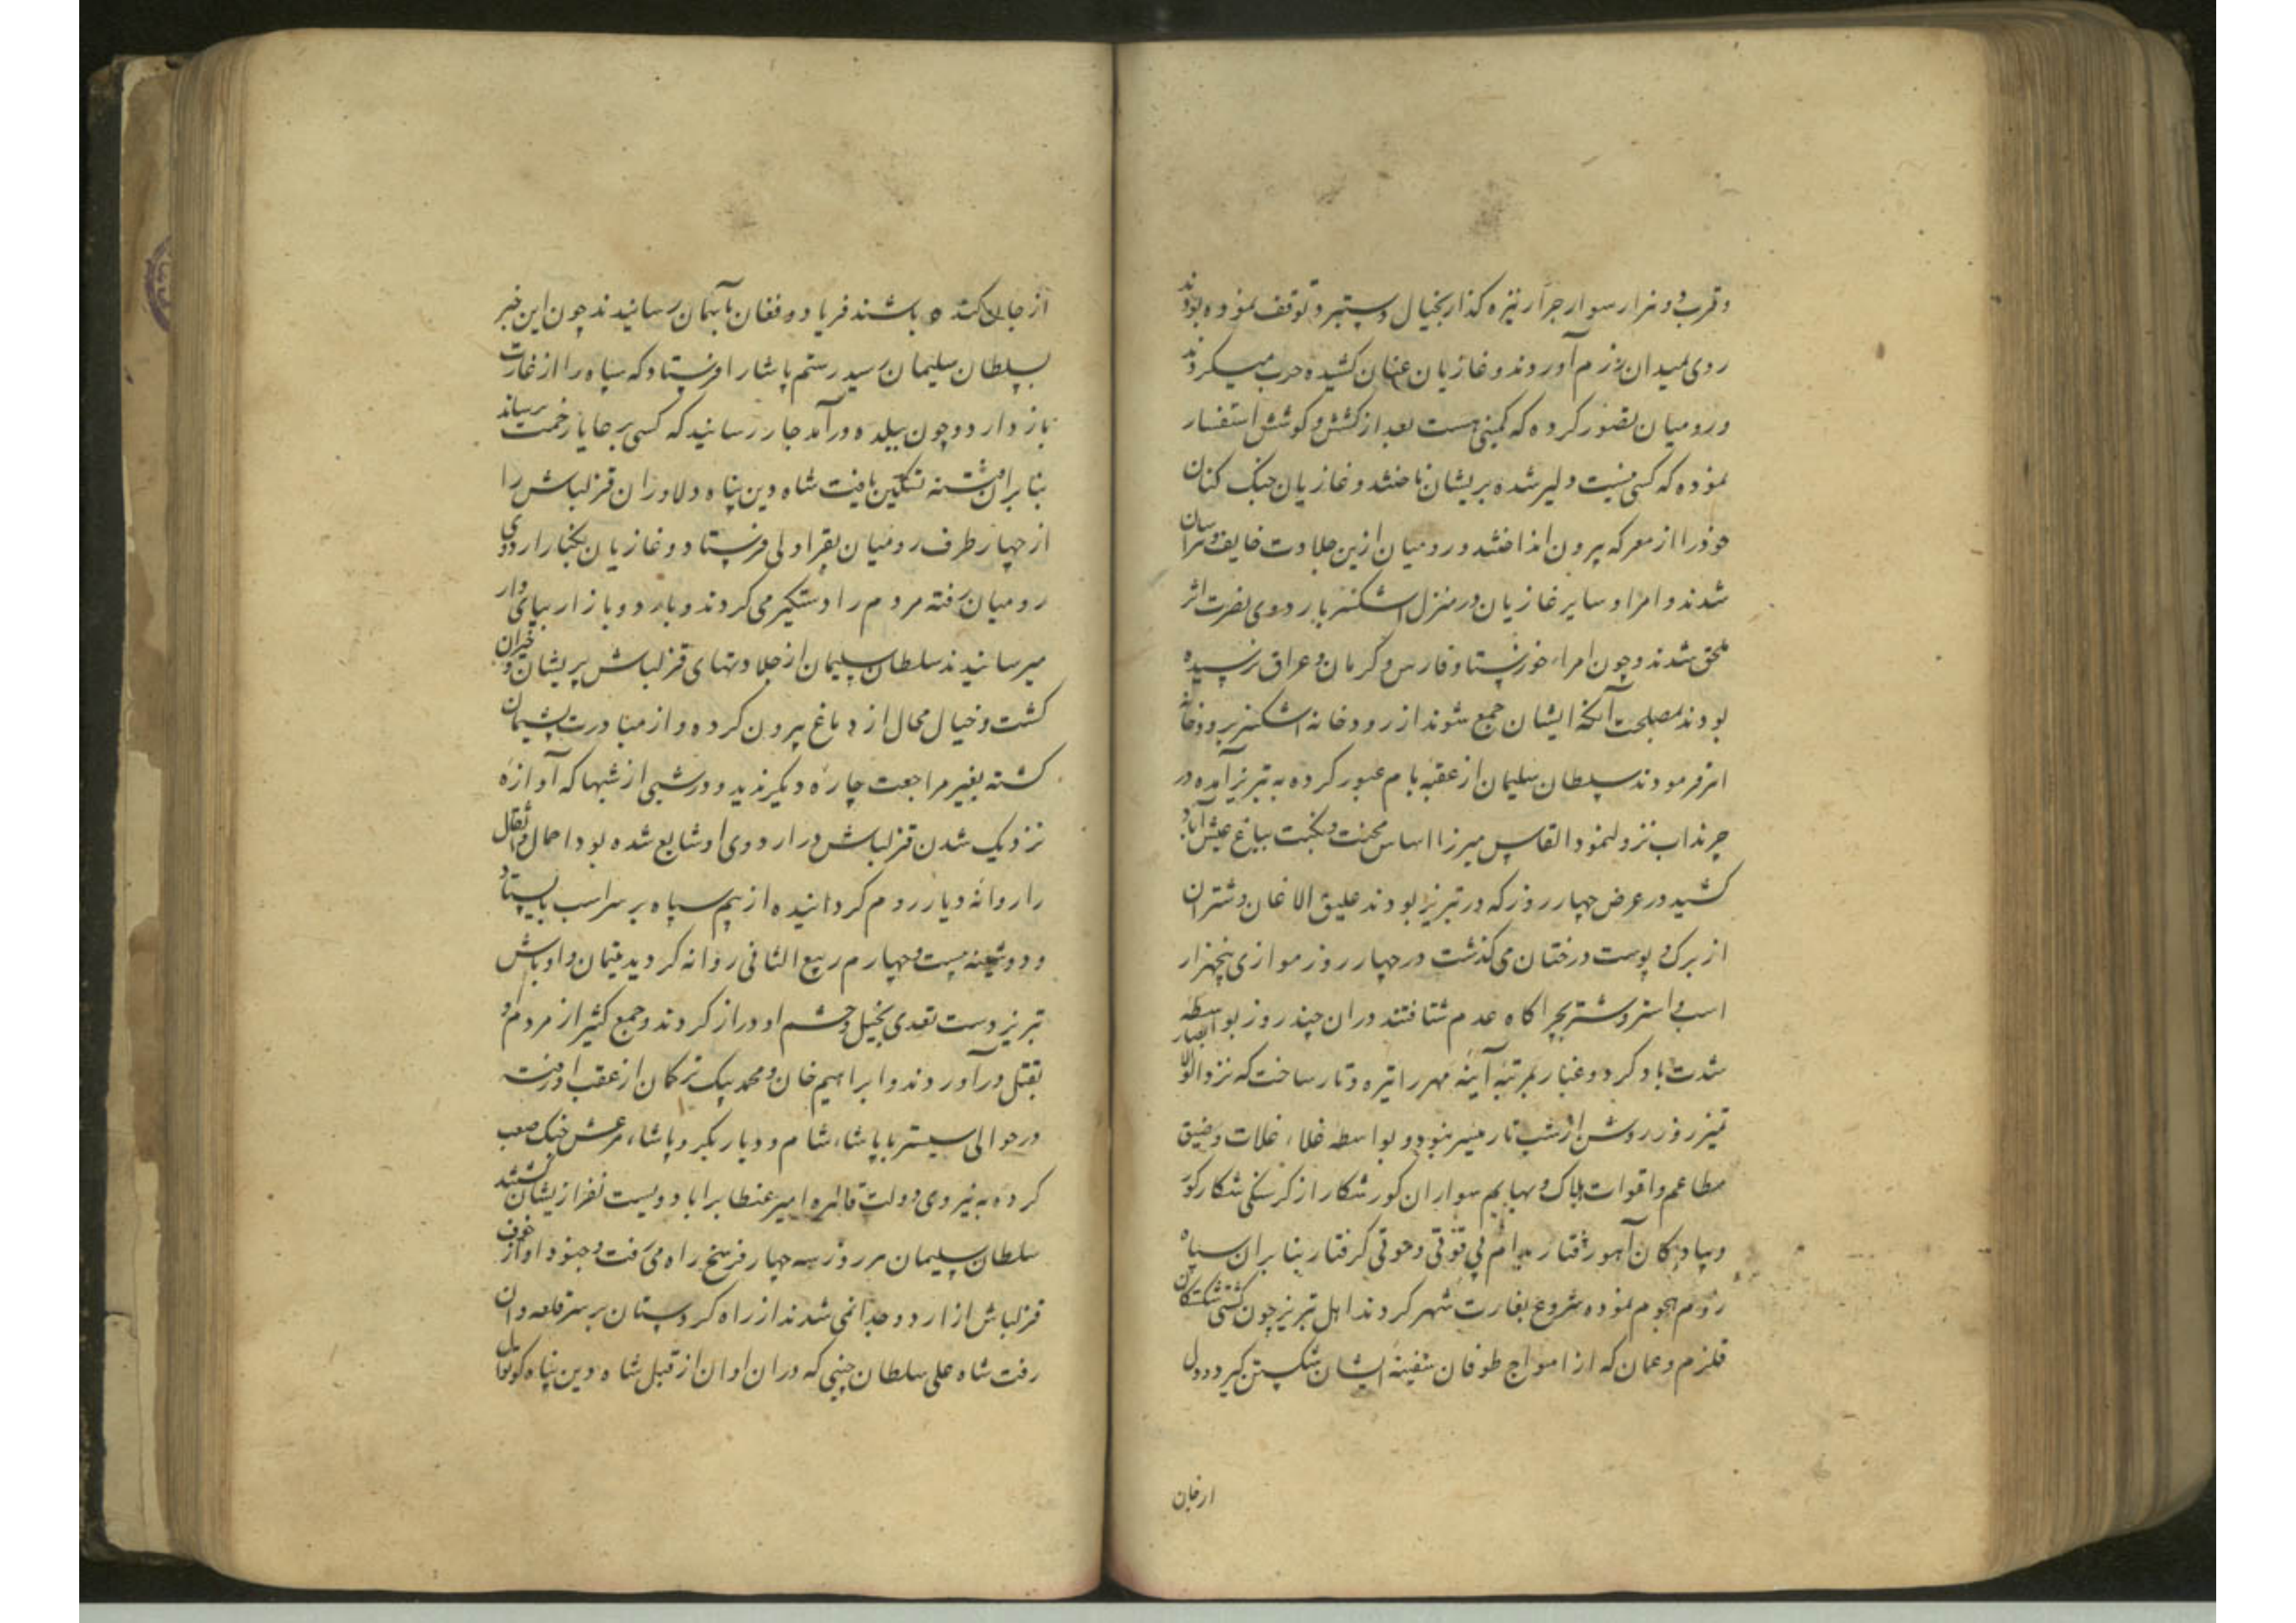 و قرب دو هزار سوار جرار نیزه کذار بخیال دستبرد توقف نموده بودند
روی بمیدان رزم آوردند و غازیان عنان کشیده حرب میکردند
و رومیان تصور کرده که کمینی هست بعد از کشش و کوشش استفسار
نموده که کسی نیست دلیر شده بریشان تاختند و غازیان جنک کنان
خود را از معرکه بیرون انداختند و رومیان ازین جلادت خایف و هراسان
شدند و امرا و سایر غازیان در منزل اشکنبر باردوی نصرت اثر
ملحق شدند و چون امراء خوزستان و فارس و کرمان و عراق نرسیده
بودند بمصلحت آنکه ایشان جمع شوند از رودخانه اشکنبر برودخانه
اهر فرمودند سلطان سلیمان از عقبه بام عبور کرده به تبریز آمده در
چرنداب نزول نمود و القاس میرزا اساس محنت و نکبت بباغ عیش آباد
کشید در عرض چهار روز که در تبریز بودند علیق الاغان و شتران
از برک و پوست درختان می کذشت در چهار روز موازی پنجهزار
اسب و استر و شتر بچراکاه عدم شتافتند دران چند روز بواسطه
شدت باد کرد و غبار بمرتبه آینه مهر را تیره و تار ساخت که نزد اولو الابصار
تمیز روز روشن از شب تار میسر نبود و بواسطه غلاء غلات و ضیق
مطاعم و اقوات هلاک و بهایم سواران کور شکار از کرسنکی شکار کور
و پیادکان آهو رفتار بدام بی قوتی و حوتی کرفتار بنا بران سپاه
روم هجوم نموده شروع بغارت شهر کردند اهل تبریز چون کشتی شکستکان
قلزم و عمان که از امواج طوفان سفینه ایشان شکستن کیرد و دل
از جان
از جان کنده باشند فریاد و فغان بآسمان رسانیدند چون این خبر
بسلطان سلیمان رسید رستم پاشا را فرستاد که سپاه را از غارت
باز دارد و چون ببلده درآمد جار رسانید که کسی برعایا زحمت نرساند
بنا بران فتنه تسکین یافت شاه دین پناه دلاوران قزلباش را
از چهار طرف رومیان بقراولی فرستاد و غازیان بکنار اردوی
رومیان رفته مردم را دستکیر می کردند و باردو بازار بپای دار
میرسانیدند سلطان سلیمان از جلادتهای قزلباش پریشان و حیران
کشت و خیال محال از دماغ بیرون کرده و از مبادرت پشیمان
کشته بغیر مراجعت چاره دیکر ندید و در شبی از شبها که آوازه
نزدیک شدن قزلباش در اردوی او شایع شده بود احمال و اثقال
را روانه دیار روم کردانیده از بیم سپاه بر سر اسب بایستاد
و دوشنبه بیست و چهارم ربیع الثانی روانه کردید یتیمان و اوباش
تبریز دست تعدی بخیل و حشم او دراز کردند و جمع کثیر از مردم او
بقتل درآوردند و ابراهیم خان و محمد بیک ترکمان از عقب او رفته
در حوالی سیستر با پاشاء شام و دیار بکر و پاشاء مرعش جنک صعب
کرده به نیروی دولت قاهره امیر عنطا برابا دویست نفر ازیشان کشتند
سلطان سلیمان هر روز سه چهار فرسخ راه می رفت و جنود او از خوف
قزلباش از اردو جدا نمی شدند از راه کردستان بر سر قلعه وان
رفت شاه علی سلطان چپنی که دران اوان از قبل شاه دین پناه کوتوال